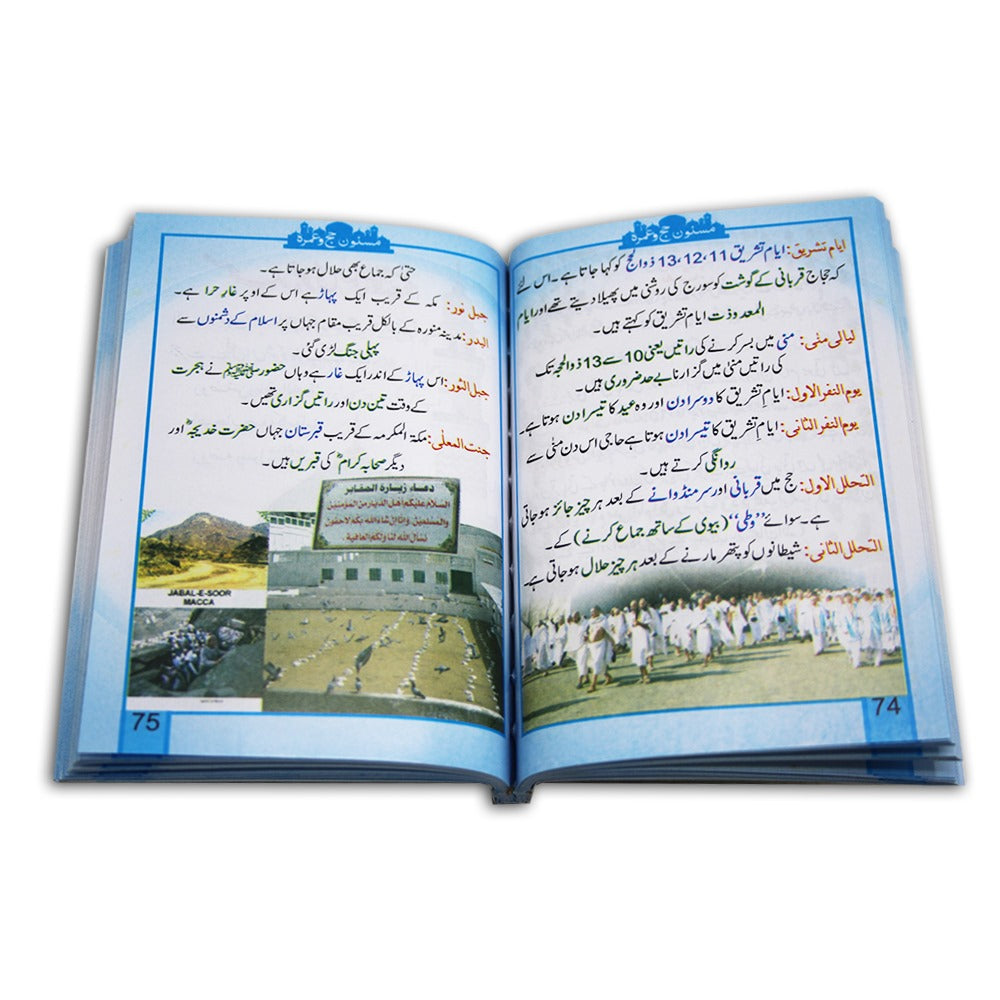 مسنون حج و عمرہ
ایام تشریق: ایام تشریق 11، 12، 13 ذوالحج کو کہا جاتا ہے۔ اس لئے
کہ حجاج قربانی کے گوشت کو سورج کی روشنی میں پھیلا دیتے تھے اور ایام
المعدودت ایام تشریق کو کہتے ہیں۔
لیالی منی: منیٰ میں بسر کرنے کی راتیں یعنی 10 سے 13 ذوالحجہ تک
کی راتیں منیٰ میں گزارنا بے حد ضروری ہیں۔
یوم النفر الاول: ایامِ تشریق کا دوسرا دن اور وہ عید کا تیسرا دن ہوتا ہے۔
یوم النفر الثانی: ایامِ تشریق کا تیسرا دن ہوتا ہے حاجی اس دن منیٰ سے
روانگی کرتے ہیں۔
التحلل الاول: حج میں قربانی اور سر منڈوانے کے بعد ہر چیز جائز ہو جاتی
ہے۔ سوائے ”وطی“ (بیوی کے ساتھ جماع کرنے) کے۔
التحلل الثانی: شیطانوں کو پتھر مارنے کے بعد ہر چیز حلال ہو جاتی ہے۔
74
مسنون حج و عمرہ
حتیٰ کہ جماع بھی حلال ہو جاتا ہے۔
جبل نور: مکہ کے قریب ایک پہاڑ ہے اس کے اوپر غارِ حرا ہے۔
البدر: مدینہ منورہ کے بالکل قریب مقام جہاں پر اسلام کے دشمنوں سے
پہلی جنگ لڑی گئی۔
جبل الثور: اس پہاڑ کے اندر ایک غار ہے وہاں حضور ﷺ نے ہجرت
کے وقت تین دن اور راتیں گزاری تھیں۔
جنت المعلٰی: مکۃ المکرمہ کے قریب قبرستان جہاں حضرت خدیجہؓ اور
دیگر صحابہ کرامؓ کی قبریں ہیں۔
دعاء زيارة المقابر
السلام عليكم أهل الديار من المؤمنين
والمسلمين، وإنا إن شاء الله بكم لاحقون
نسأل الله لنا ولكم العافية.
JABAL-E-SOOR
MACCA
75